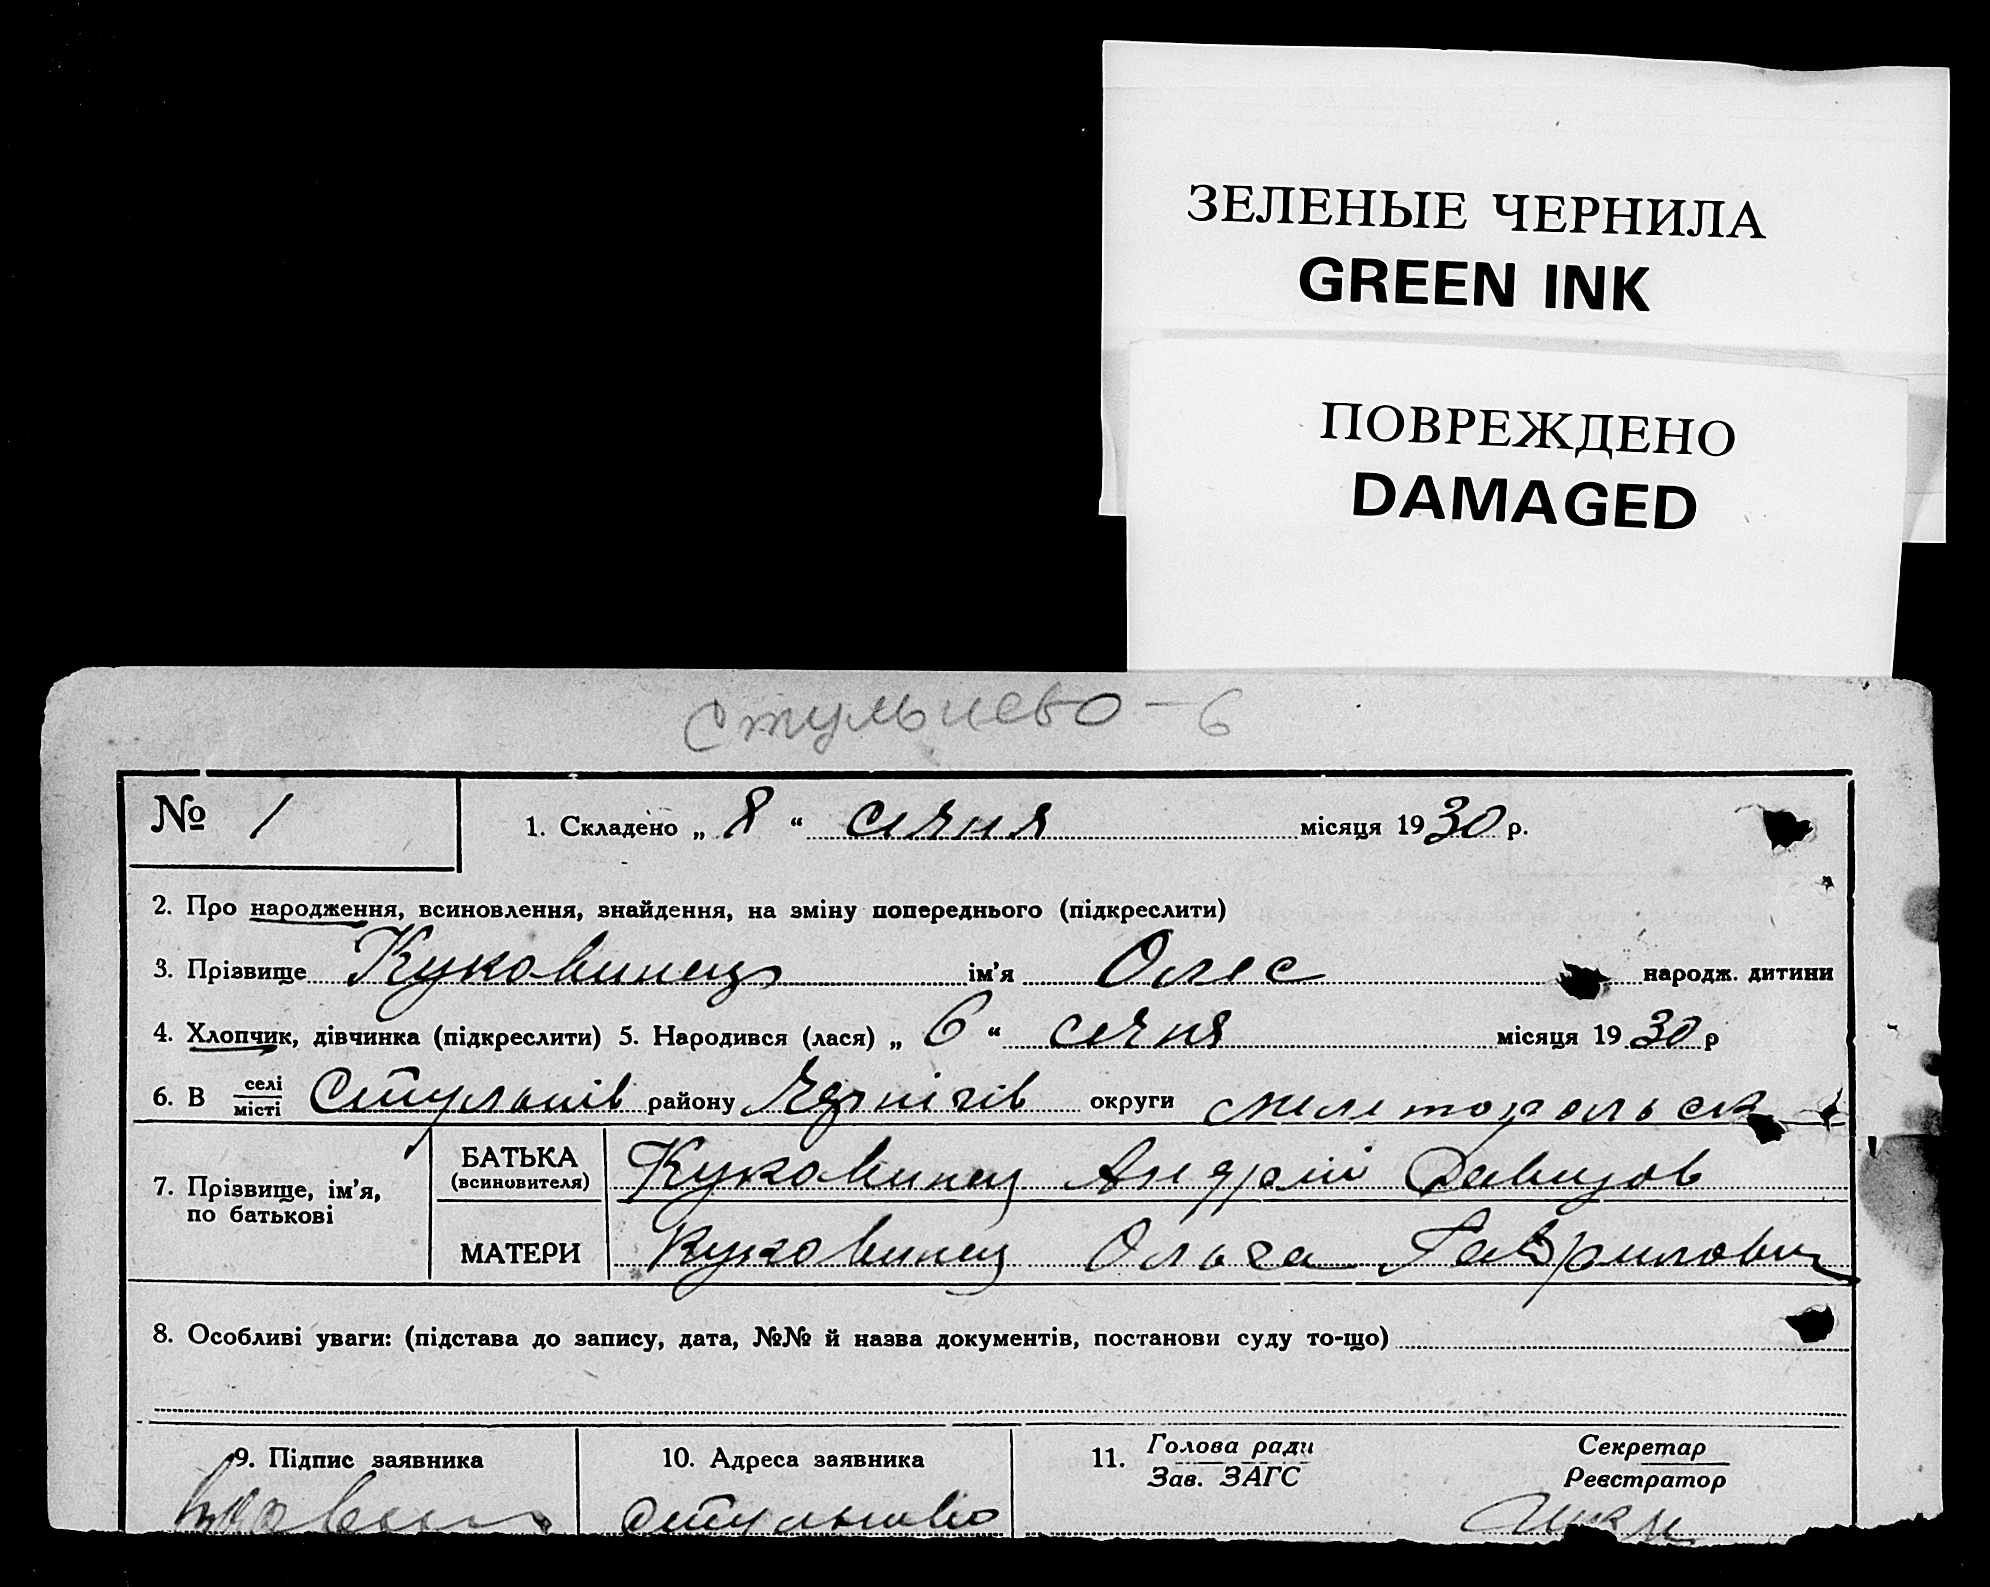 ЗЕЛЕНЫЕ ЧЕРНИЛА
GREEN INK
ПОВРЕЖДЕНО
DAMAGED
Стульнево - 6
№ 1
1. Складено „ 8 “ січня місяця 1930 р.
2. Про народження, всиновлення, знайдення, на зміну попереднього (підкреслити)
3. Прізвище Куковинець ім'я Олес народж. дитини
4. Хлопчик, дівчинка (підкреслити) 5. Народився (лася) „ 6 “ січня місяця 1930 р
6. В селі місті Стульнів району округи мелитопольск
7. Прізвище, ім'я, по батькові
БАТЬКА (всиновителя) Куковинец Андрій Давидов
МАТЕРИ Куковинец Ольга Гаврилович
8. Особливі уваги: (підстава до запису, дата, №№ й назва документів, постанови суду то-що)
9. Підпис заявника
10. Адреса заявника
Стульнево
11. Голова ради
Зав. ЗАГС
Секретар
Реєстратор